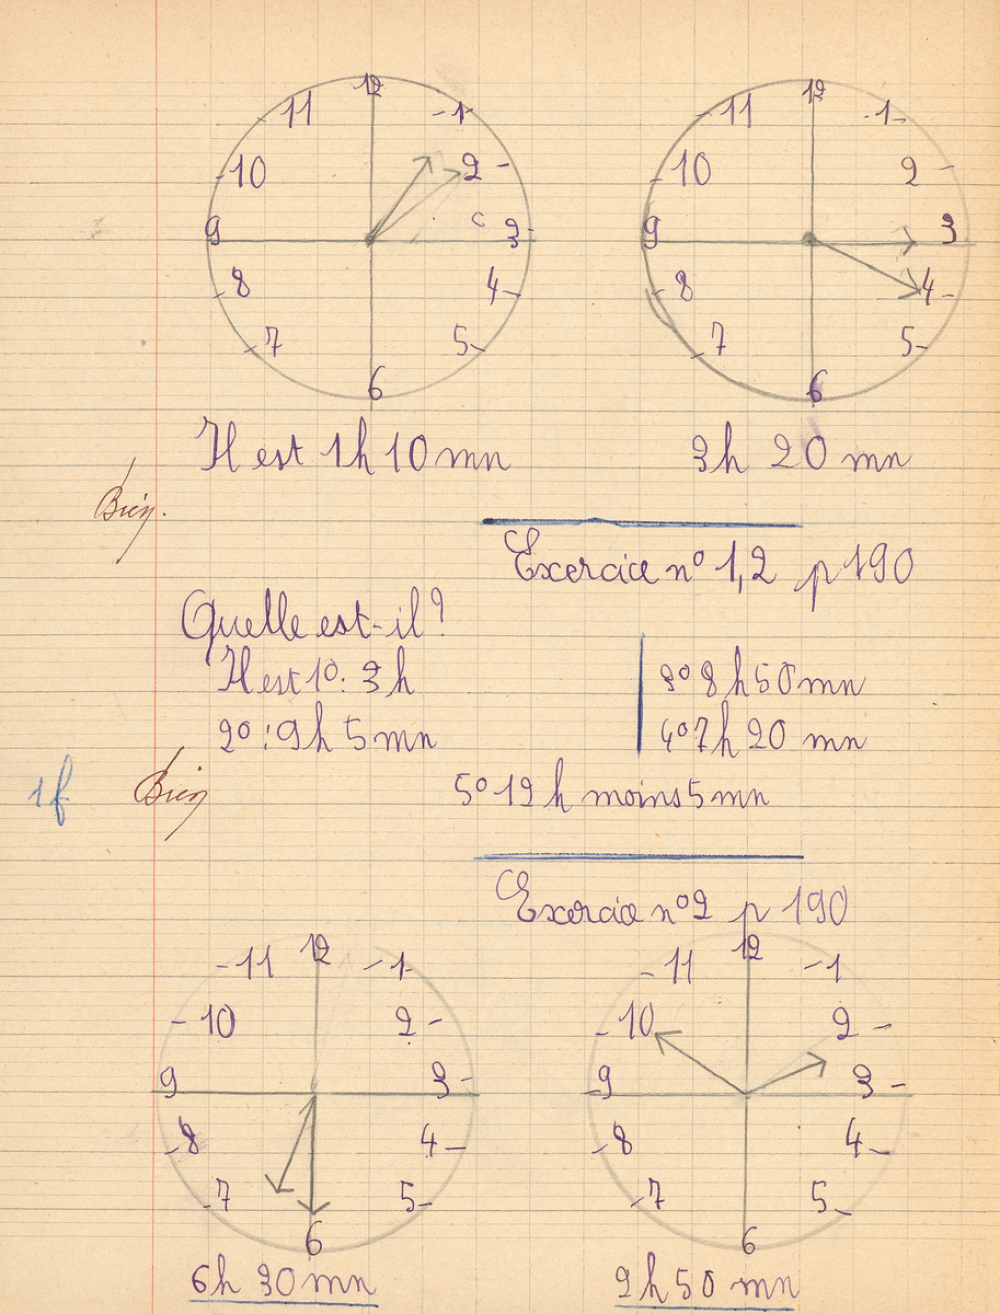 12
11 1
10 2
9 3
8 4
7 5
6
12
11 1
10 2
9 3
8 4
7 5
6
Il est 1h 10 mn
3h 20 mn
Bien.
Exercice n° 1,2 p 190
Quelle est-il?
Il est 1°: 3 h
2° : 9h 5 mn
3° 8 h 50 mn
4° 7 h 20 mn
1f
Bien
5° 12 h moins 5 mn
Exercice n° 2 p 190
12
11 1
10 2
9 3
8 4
7 5
6
12
11 1
10 2
9 3
8 4
7 5
6
6h 30 mn
2h 50 mn